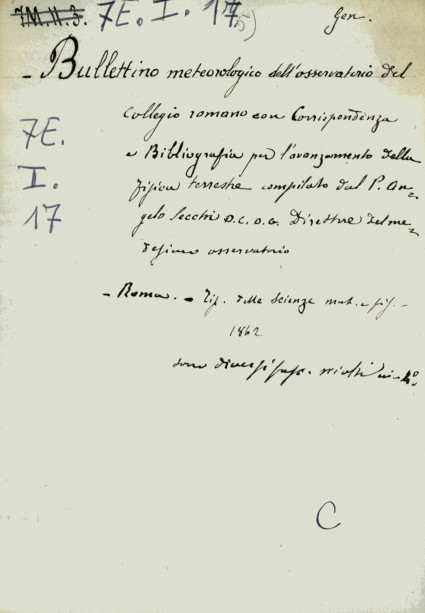 7M.II.3. 7E. I. 17.
Gen.
- Bullettino meteorologico dell'osservatorio del
Collegio romano con Corrispondenza
e Bibliografia per l'avanzamento della
fisica terrestre compilato dal P. An=
gelo Secchi D.C.D.G. Direttore del me=
desimo osservatorio
7E.
I.
17
- Roma. - Tip. delle scienze mat. e fis. -
1862
sono diversi fasc. in-4º
C